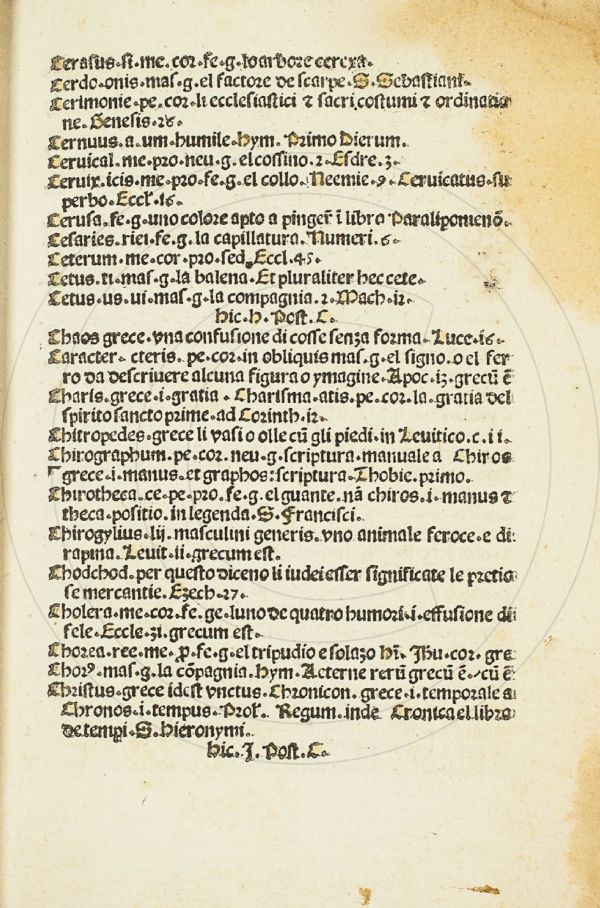 Cerasus. si. me. cor. fe. g. lo arbore cerexa.
Cerdo. onis. mas. g. el factore de scarpe. S. Sebastiani.
Cerimonie. pe. cor. li ecclesiastici ⁊ sacri costumi ⁊ ordinatio
ne. Genesis. 26.
Cernuus. a. um. humile. Hym. Primo Dierum.
Cervical. me. pro. neu. g. el cossino. 2. Esdre. 3.
Cervix. icis. me. pro. fe. g. el collo. Neemie. 9. Cervicatus. su
perbo. Eccl. 16.
Cerusa. fe. g. uno colore apto a pinger ī libro Paralipomenō.
Cesaries. riei. fe. g. la capillatura. Numeri. 6.
Ceterum. me. cor. pro. sed. Eccl. 45.
Cetus. ti. mas. g. la balena. Et pluraliter hec cete.
Cetus. us. ui. mas. g. la compagnia. 2. Mach. 12.
hic. h. Post. C.
Chaos grece. vna confusione di cosse senza forma. Luce. 16.
Caracter. cteris. pe. cor. in obliquis mas. g. el signo. o el fer
ro da descrivere alcuna figura o ymagine. Apoc. 13. grecū ē
Charis. grece. i. gratia. Charisma. atis. pe. cor. la. gratia del
spirito sancto prime. ad Corinth. 12.
Chitropedes. grece li vasi o olle cū gli piedi. in Levitico. c. 11.
Chirographum. pe. cor. neu. g. scriptura. manuale a Chiros
grece. i. manus. et graphos: scriptura. Thobie. primo.
Chirotheca. ce. pe. pro. fe. g. el guante. nā chiros. i. manus ⁊
theca. positio. in legenda. S. Francisci.
Chirogylius. lij. masculini generis. vno animale feroce. e di
rapina. Levit. 11. grecum est.
Chodchod. per questo diceno li iudei esser significate le pretio
se mercantie. Ezech. 27.
Cholera. me. cor. fe. ge. luno de quatro humori. i. effusione di
fele. Eccle. 31. grecum est.
Chorea. ree. me. ꝓ. fe. g. el tripudio e solazo hī. Jhu. cor. gre
Chorꝰ. mas. g. la cōpagnia. Hym. Aeterne rerū grecū ē. cū ē
Christus. grece idest vnctus. Chronicon. grece. i. temporale a
Chronos. i. tempus. Prol. Regum. inde Cronica el libro
de tempi. S. Hieronymi.
hic. J. Post. C.